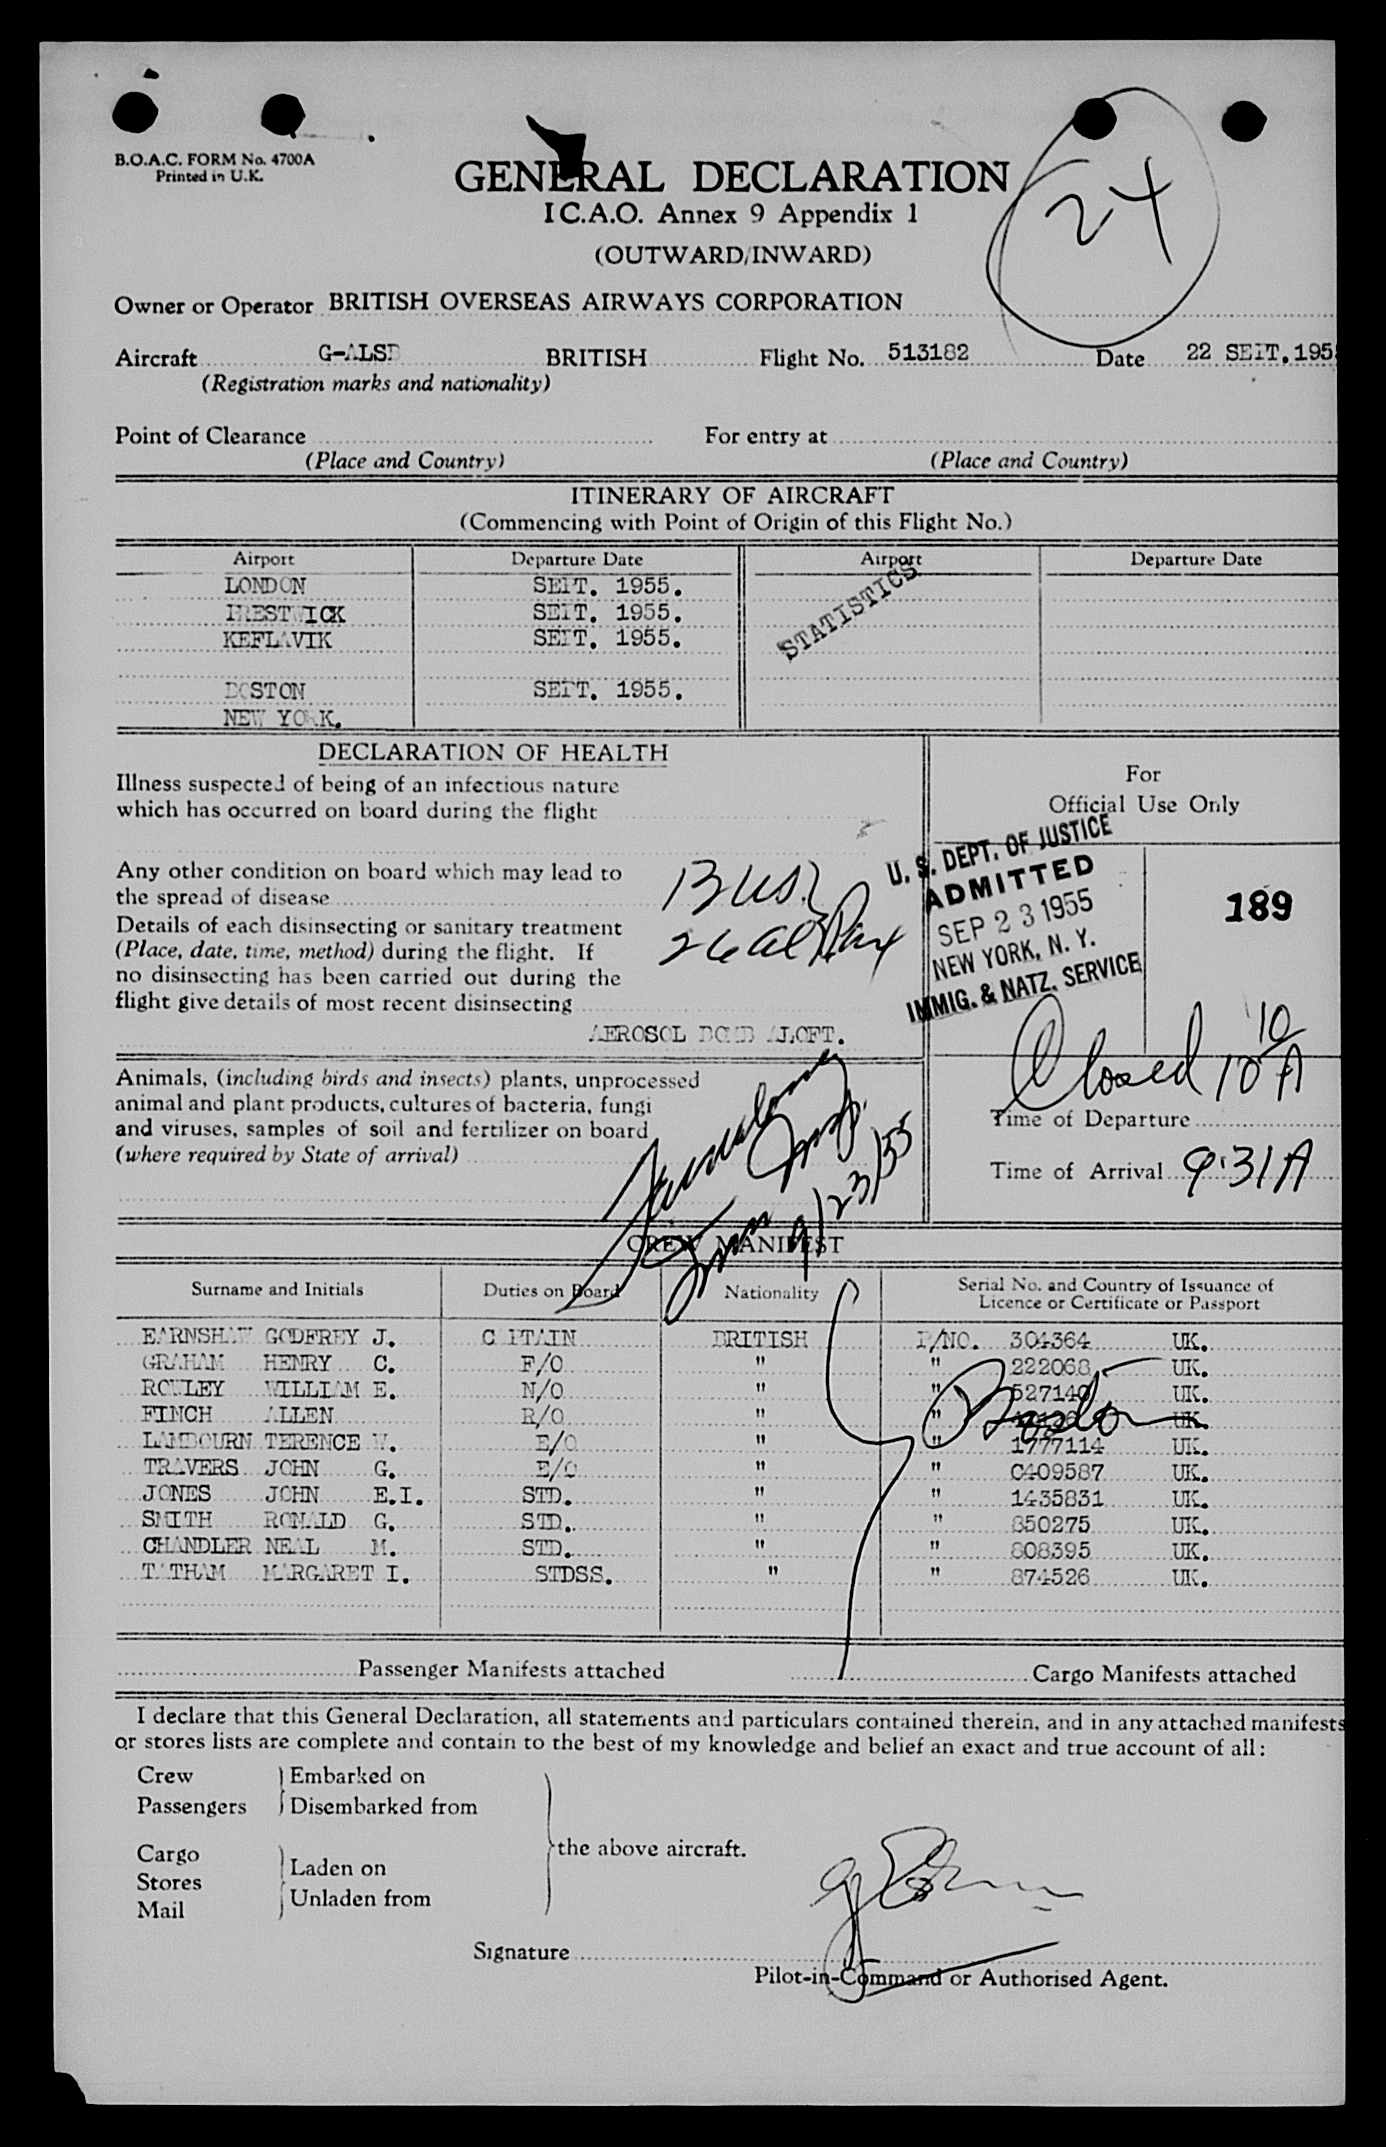 B.O.A.C. FORM No. 4700A
Printed in U.K.
GENERAL DECLARATION
I C.A.O. Annex 9 Appendix 1
(OUTWARD/INWARD)
24
Owner or Operator BRITISH OVERSEAS AIRWAYS CORPORATION
Aircraft G-ALSD BRITISH Flight No. 513182 Date 22 SEPT. 195
(Registration marks and nationality)
Point of Clearance For entry at
(Place and Country) (Place and Country)
ITINERARY OF AIRCRAFT
(Commencing with Point of Origin of this Flight No.)
Airport Departure Date Airport Departure Date
LONDON SEPT. 1955.
PRESTWICK SEPT. 1955.
KEFLAVIK SEPT. 1955.
STATISTICS
BOSTON SEPT. 1955.
NEW YORK.
DECLARATION OF HEALTH
Illness suspected of being of an infectious nature
which has occurred on board during the flight
For
Official Use Only
Any other condition on board which may lead to
the spread of disease
Details of each disinsecting or sanitary treatment
(Place, date, time, method) during the flight. If
no disinsecting has been carried out during the
flight give details of most recent disinsecting
AEROSOL BOMB ALOFT.
13 US.
26 al Pax
U. S. DEPT. OF JUSTICE
ADMITTED
SEP 23 1955
NEW YORK, N. Y.
IMMIG. & NATZ. SERVICE
189
Closed 10 10/A
Animals, (including birds and insects) plants, unprocessed
animal and plant products, cultures of bacteria, fungi
and viruses, samples of soil and fertilizer on board
(where required by State of arrival)
9/23/55
Time of Departure
Time of Arrival 9:31 A
CREW MANIFEST
Surname and Initials Duties on Board Nationality Serial No. and Country of Issuance of
Licence or Certificate or Passport
EARNSHAW GODFREY J. CAPTAIN BRITISH P/NO. 304364 UK.
GRAHAM HENRY C. F/O " " 222068 UK.
ROWLEY WILLIAM E. N/O " " 527140 UK.
FINCH ALLEN R/O " " UK.
LAMBOURN TERENCE W. E/O " " 1777114 UK.
TRAVERS JOHN G. E/O " " C409587 UK.
JONES JOHN E.I. STD. " " 1435831 UK.
SMITH RONALD G. STD. " " 850275 UK.
CHANDLER NEAL M. STD. " " 808395 UK.
TATHAM MARGARET I. STDSS. " " 874526 UK.
Boston
Passenger Manifests attached Cargo Manifests attached
I declare that this General Declaration, all statements and particulars contained therein, and in any attached manifests
or stores lists are complete and contain to the best of my knowledge and belief an exact and true account of all:
Crew Embarked on
Passengers Disembarked from
the above aircraft.
Cargo
Stores Laden on
Mail Unladen from
Signature
Pilot-in-Command or Authorised Agent.